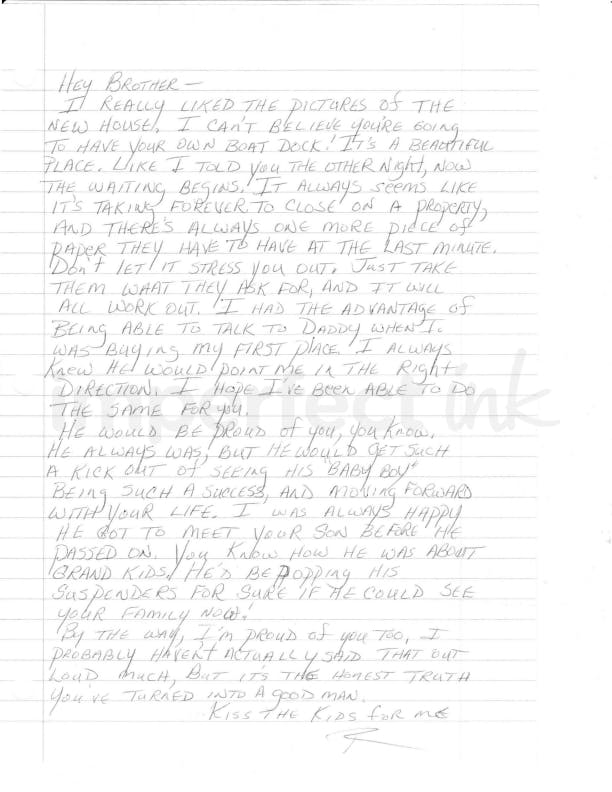 Hey Brother —
I really liked the pictures of the
new house. I can't believe you're going
to have your own boat dock! It's a beautiful
place. Like I told you the other night, now
the waiting begins. It always seems like
it's taking forever to close on a property,
and there's always one more piece of
paper they have to have at the last minute.
Don't let it stress you out. Just take
them what they ask for, and it will
all work out. I had the advantage of
being able to talk to Daddy when I
was buying my first place. I always
knew he would point me in the right
direction. I hope I've been able to do
the same for you.
He would be proud of you, you know.
He always was, but he would get such
a kick out of seeing his "baby boy"
being such a success, and moving forward
with your life. I was always happy
he got to meet your son before he
passed on. You know how he was about
grand kids. He'd be popping his
suspenders for sure if he could see
your family now!
By the way, I'm proud of you too. I
probably haven't actually said that out
loud much, but it's the honest truth
you've turned into a good man.
Kiss the kids for me
R
imperfect ink